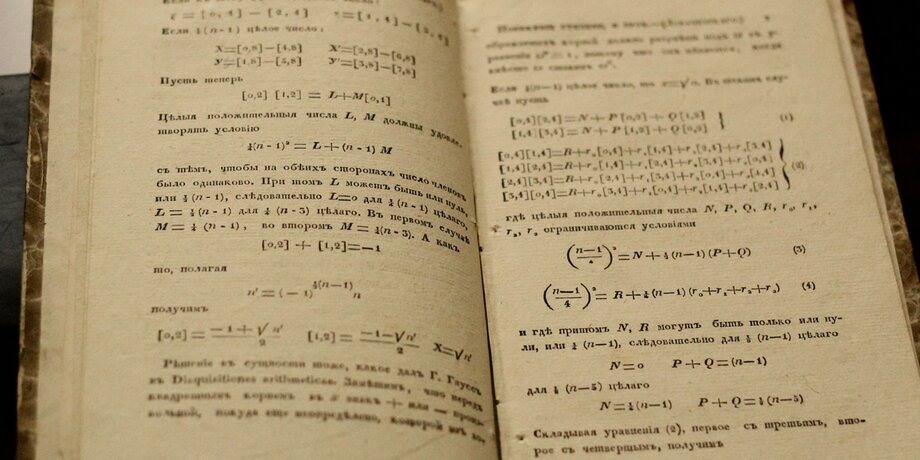 ε = [0,4] − [2,4] τ = [1,4] − [3,4]
Если ¼(n-1) цѣлое число:
X=[0,8]−[4,8] X'=[2,8]−[6,8]
Y=[1,8]−[5,8] Y'=[3,8]−[7,8]
Пусть теперь
[0,2] [1,2] = L+M[0,1]
Цѣлыя положительныя числа L, M должны удовле-
творять условію
¼(n-1)² = L+½(n-1) M
съ тѣмъ, чтобы на обѣихъ сторонахъ число членовъ
было одинаково. При томъ L можетъ быть или нуль,
или ½(n-1), слѣдовательно L=0 для ¼(n-1) цѣлаго,
L=½(n-1) для ¼(n-3) цѣлаго. Въ первомъ случаѣ
M=½(n-1), во второмъ M=½(n-3). А какъ
[0,2] + [1,2]=−1
то, полагая
n'=(−1)^½(n−1) n
получимъ
[0,2] = (−1+√n')/2 [1,2] = (−1−√n')/2 X=√n'
Рѣшеніе въ сущности тоже, какое далъ Г. Гауссъ
въ Disquisitiones arithmeticae. Замѣтимъ, что передъ
квадратнымъ корнемъ знакъ + или −
вольной, покуда еще неопредѣлено, которой изъ
Если ¼(n−1) цѣлое число, то Въ этомъ слу-
чаѣ пусть
[0,4][2,4]=N+P[0,2]+Q[1,2]
[1,4][3,4]=N+P[1,2]+Q[0,2] } (1)
[0,4][1,4]=R+r₀[0,4]+r₁[1,4]+r₂[2,4]+r₃[3,4]
[1,4][2,4]=R+r₀[1,4]+r₁[2,4]+r₂[3,4]+r₃[0,4]
[2,4][3,4]=R+r₀[2,4]+r₁[3,4]+r₂[0,4]+r₃[1,4]
[3,4][0,4]=R+r₀[3,4]+r₁[0,4]+r₂[1,4]+r₃[2,4] } (2)
гдѣ цѣлыя положительныя числа N, P, Q, R, r₀, r₁,
r₂, r₃ ограничиваются условіями
((n−1)/4)²=N+½(n−1)(P+Q) (3)
((n−1)/4)²=R+¼(n−1)(r₀+r₁+r₂+r₃) (4)
и гдѣ притомъ N, R могутъ быть только или ну-
ли, или ¼(n−1), слѣдовательно для ⅛(n−1) цѣлаго
N=0 P+Q=⅛(n−1)
для ⅛(n−5) цѣлаго
N=¼(n−1) P+Q=⅛(n−5)
Складывая уравненія (2), первое съ третьимъ, вто-
рое съ четвертымъ, получимъ